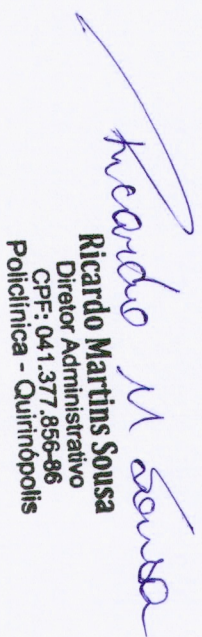 Ricardo M Sousa
Ricardo Martins Sousa
Diretor Administrativo
CPF: 041.377.856-86
Policlínica - Quirinópolis